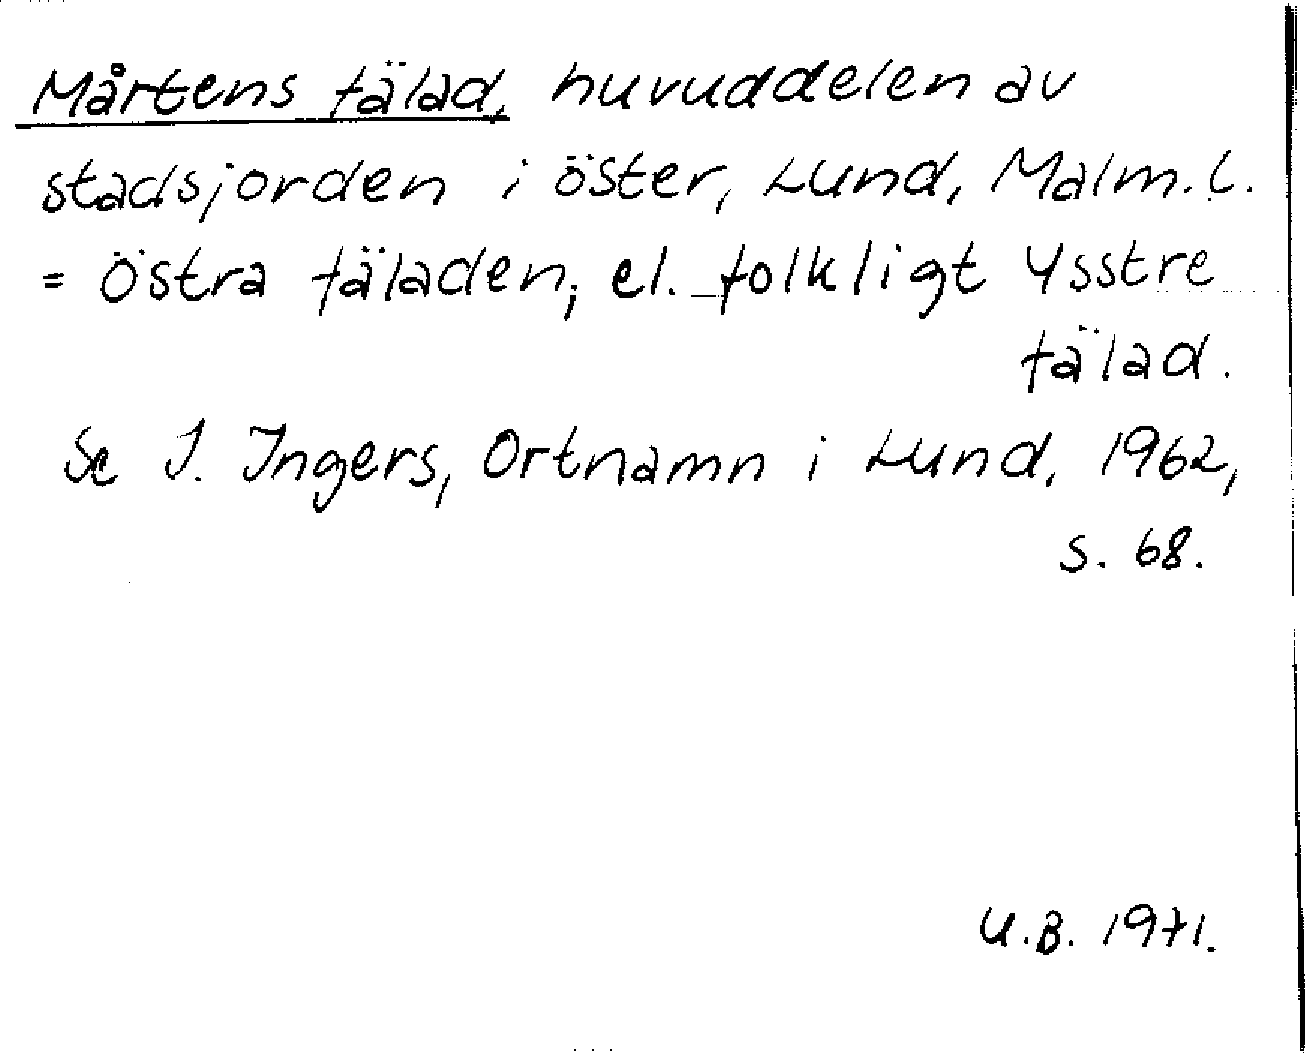 Mårtens fälad, huvuddelen av
stadsjorden i öster, Lund, Malm. l.
= Östra fäladen; el. folkligt Ysstre
fälad.
Se I. Ingers, Ortnamn i Lund, 1962,
s. 68.
U.B. 1971.